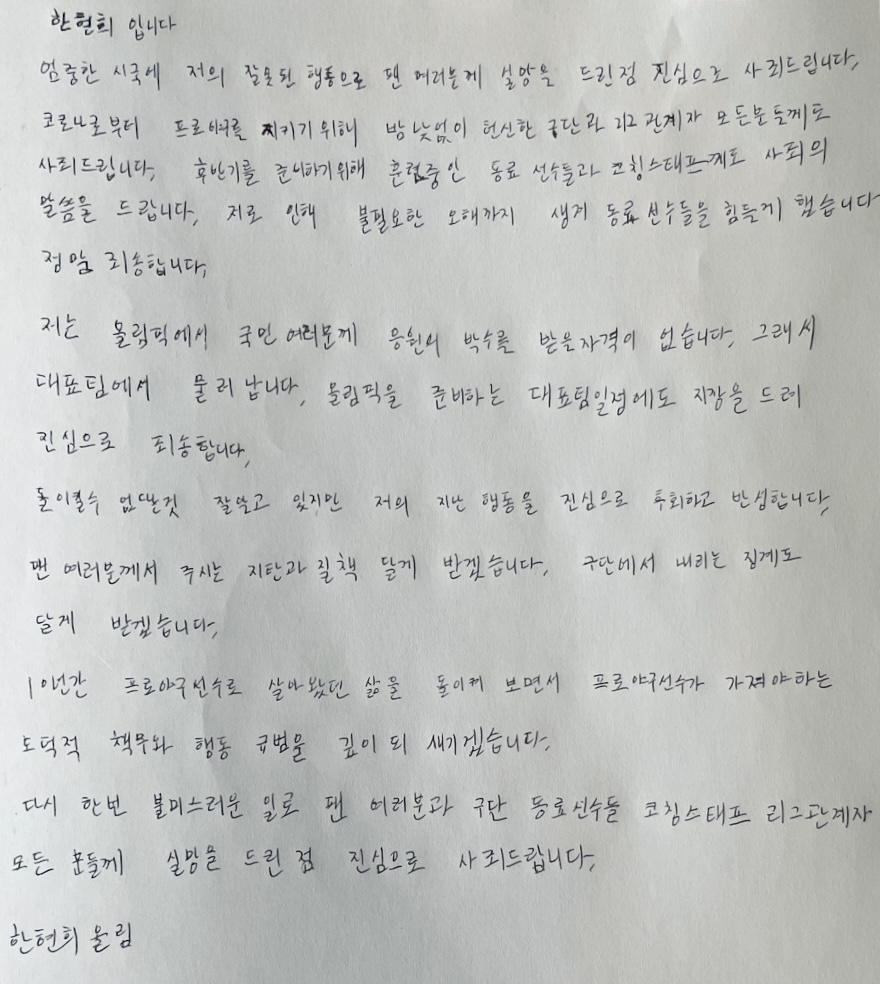 한현희 입니다
엄중한 시국에 저의 잘못된 행동으로 팬 여러분께 실망을 드린점 진심으로 사죄드립니다,
코로나로부터 프로야구를 지키기 위해 밤 낮없이 헌신한 구단과 리그 관계자 모든분들께도
사죄드립니다, 후반기를 준비하기위해 훈련중인 동료 선수들과 코칭스태프께도 사죄의
말씀을 드립니다, 저로 인해 불필요한 오해까지 생겨 동료 선수들을 힘들게 했습니다
정말 죄송합니다,
저는 올림픽에서 국민 여러분께 응원의 박수를 받을자격이 없습니다, 그래서
대표팀에서 물러 납니다, 올림픽을 준비하는 대표팀일정에도 지장을 드려
진심으로 죄송합니다,
돌이킬수 없다는것 잘알고 있지만 저의 지난 행동을 진심으로 후회하고 반성합니다,
팬 여러분께서 주시는 지탄과 질책 달게 받겠습니다, 구단에서 내리는 징계도
달게 받겠습니다,
10년간 프로야구선수로 살아왔던 삶을 돌이켜 보면서 프로야구선수가 가져야하는
도덕적 책무와 행동 규범을 깊이 되 새기겠습니다,
다시 한번 불미스러운 일로 팬 여러분과 구단 동료선수들 코칭스태프 리그관계자
모든 분들께 실망을 드린 점 진심으로 사죄드립니다,
한현희 올림